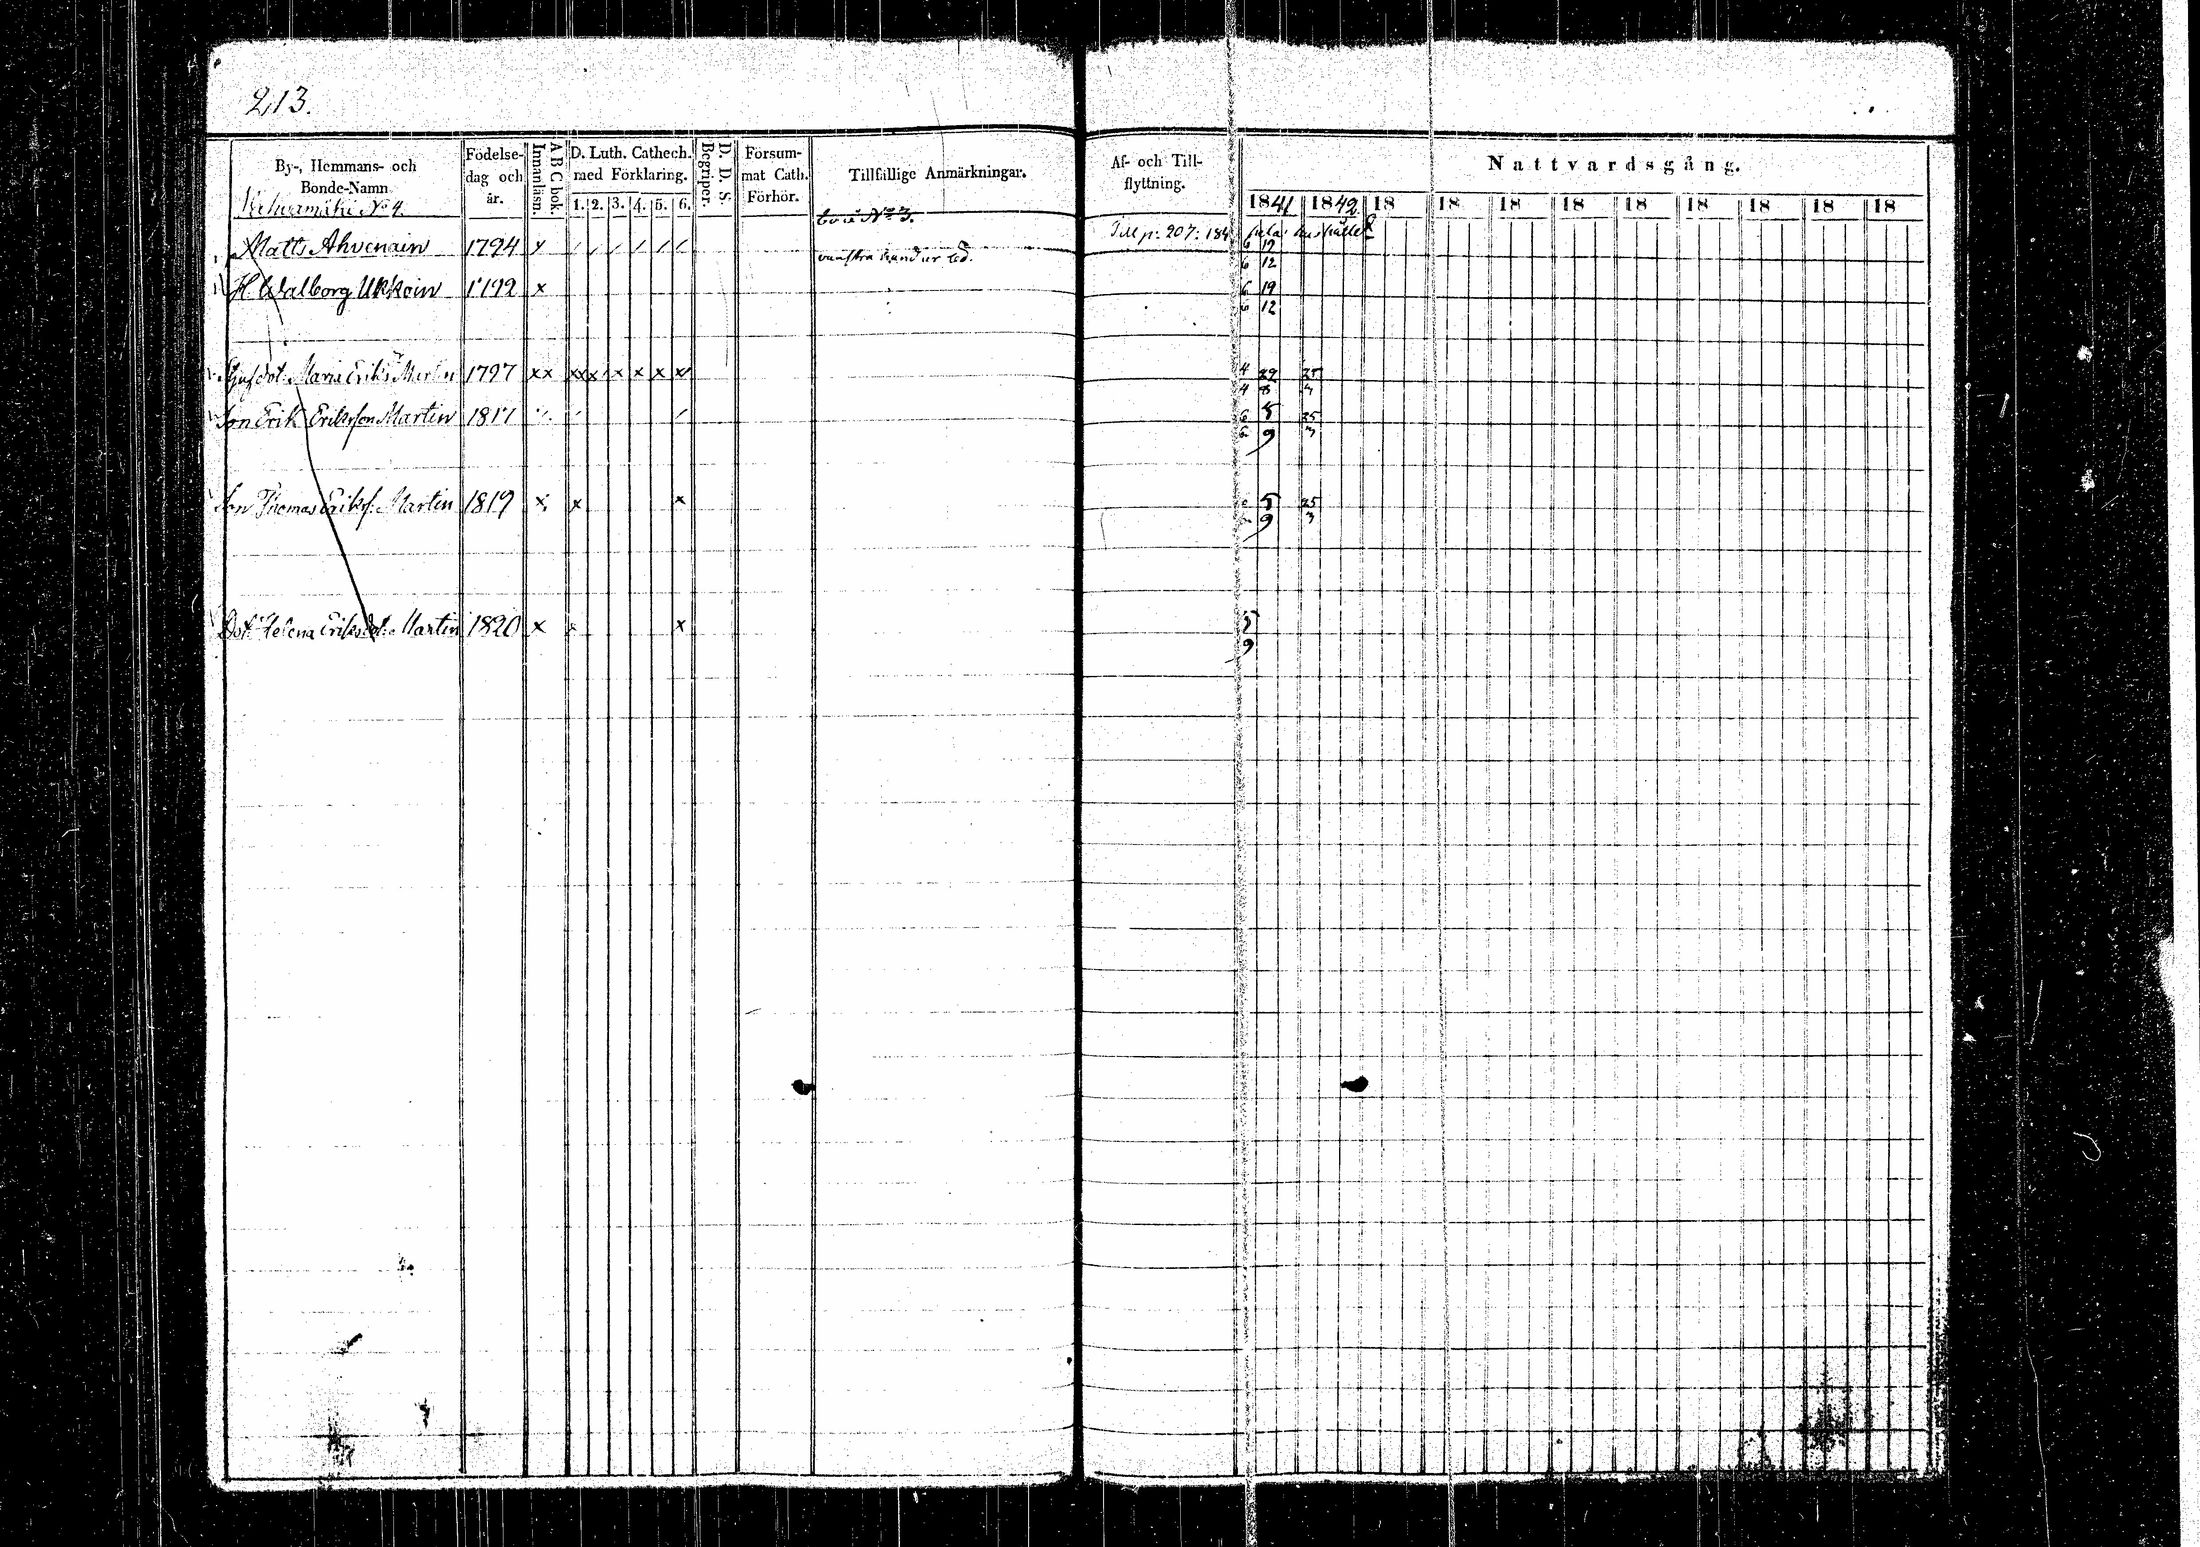 213.
By-, Hemmans- och
Bonde-Namn
No 4.
Födelse-
dag och
år.
A B C bok.
Innanläsn.
D. Luth. Cathech.
med Förklaring.
1. 2. 3. 4. 5. 6.
D. D. S.
Begriper.
Försum-
mat Cath.
Förhör.
Tillfällige Anmärkningar.
Af- och Till-
flyttning.
Nattvardsgång.
1841 1842 18 18 18 18 18 18 18 18 18
No 3.
Till p: 207: 184
Matts Ahvenain 1794 x / / / / / / 6 19
vänstra hand ur led. 6 12
H. Walborg Ukkoin 1792 x 6 19
6 12
Maria Eriks Martin 1797 xx xx x x x x x 4 29 25
4 8 3
Son Erik Eriksson Martin 1817 6 5 25
6 9 3
Son Thomas Eriks. Martin 1819 x x x 5 25
9 3
Dot: Helena Eriksdot: Martin 1820 x x x 5
9